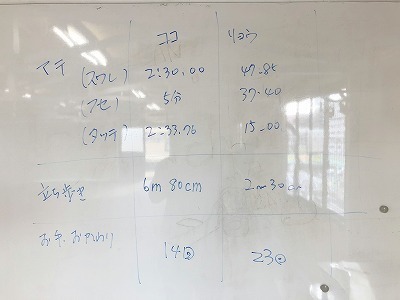 ココ リョウ
マテ (スワレ) 2:30.00 47.84
(フセ) 5分 37.40
(タッテ) 2:33.76 15.00
立ち歩き 6m 80cm 2m 30cm
お手、おかわり 14回 23回